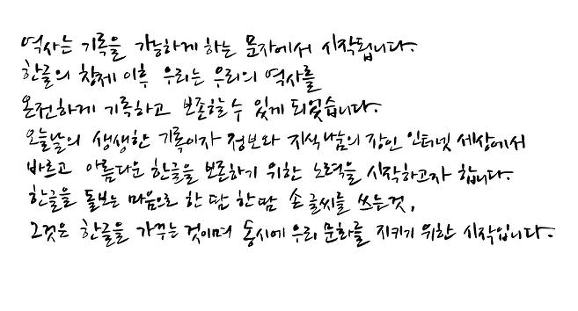 역사는 기록을 가능하게 하는 문자에서 시작됩니다.
한글의 창제 이후 우리는 우리의 역사를
온전하게 기록하고 보존할 수 있게 되었습니다.
오늘날의 생생한 기록이자 정보와 지식 나눔의 장인 인터넷 세상에서
바르고 아름다운 한글을 보존하기 위한 노력을 시작하고자 합니다.
한글을 돌보는 마음으로 한 땀 한 땀 손글씨를 쓰는 것,
그것은 한글을 가꾸는 것이며 동시에 우리 문화를 지키기 위한 시작입니다.